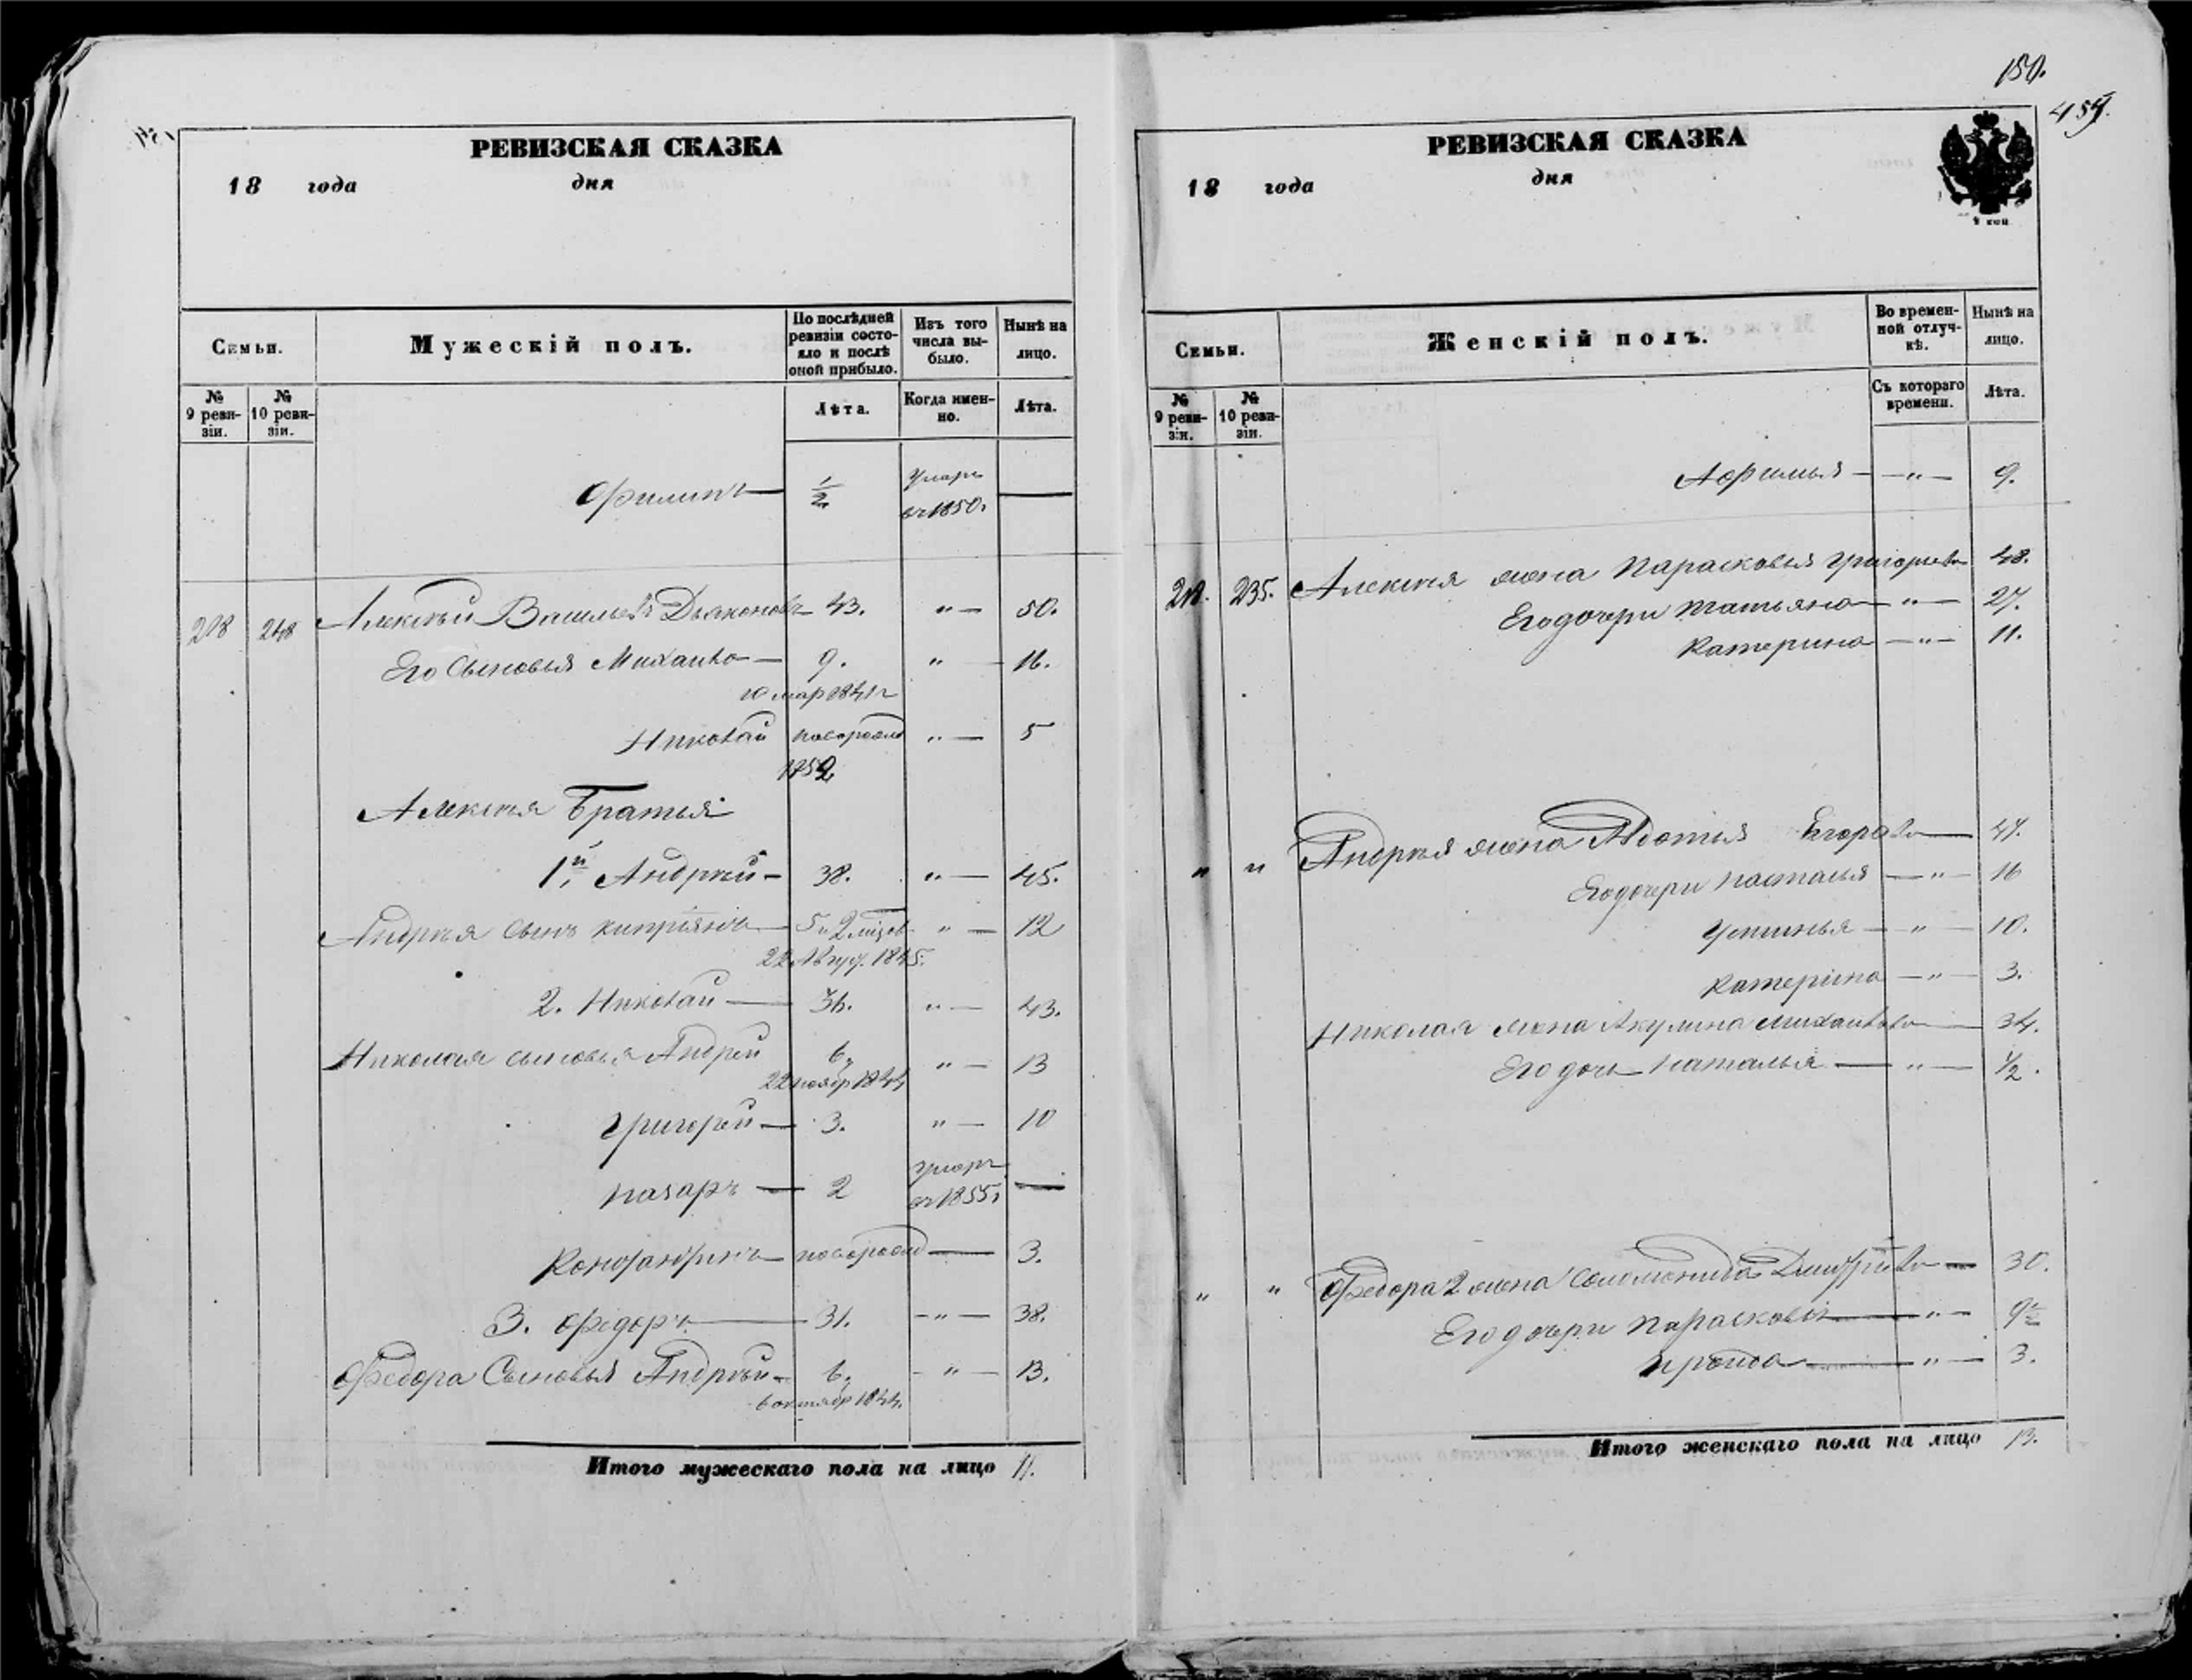 РЕВИЗСКАЯ СКАЗКА
18 года дня
Семьи.
Мужескій полъ.
По послѣдней ревизіи состояло и послѣ оной прибыло.
Изъ того числа выбыло.
Нынѣ на лицо.
№ 9 ревизіи.
№ 10 ревизіи.
Лѣта.
Когда именно.
Лѣта.
Филипъ — 1/2 умеръ въ 1850. —
218 248 Алексѣй Васильевъ Дьяконовъ 43. "— 50.
Его Сыновья Михаило — 9. " — 16.
Николай новорожд "— 5
1852
Алексѣя Братья
1й, Андрей - 38. "— 45.
Андрея сынъ Кипріянъ — 5 и 2 "— 12
22 Авгус. 1845.
2. Николай — 36. "— 43.
Николая сыновья Андрей 6, "— 13
22 ноябр 1844
Григорей — 3. "— 10
Назаръ — 2 умеръ въ 1855. —
Констанtинъ — новорожд — 3.
3. Федоръ — 31. —"— 38.
Федора Сыновья Андрей - 6, -"— 13.
6 октябр 1844.
Итого мужескаго пола на лицо 11.
150.
459.
РЕВИЗСКАЯ СКАЗКА
18 года дня
Семьи.
Женскій полъ.
Во временной отлучкѣ.
Нынѣ на лицо.
№ 9 ревизіи.
№ 10 ревизіи.
Съ котораго времени.
Лѣта.
Афимья — —"— 9.
218. 235. Алексѣя жена Парасковья Григорьева 48.
Его дочери Татьяна — "— 27.
Катерина —"— 11.
" " Андрея жена Авдотья Егорова — 47.
Его дочери Наталья —"— 16
Устинья — "— 10.
Катерина —"— 3.
Николая жена Акулина Михайлова — 34.
Его дочь Наталья — "— 1/2.
" " Федора 2 жена Соломонида Дмитріева — 30.
Его дочери Парасковья — "— 9 1/2
Ироида — "— 3.
Итого женскаго пола на лицо 13.